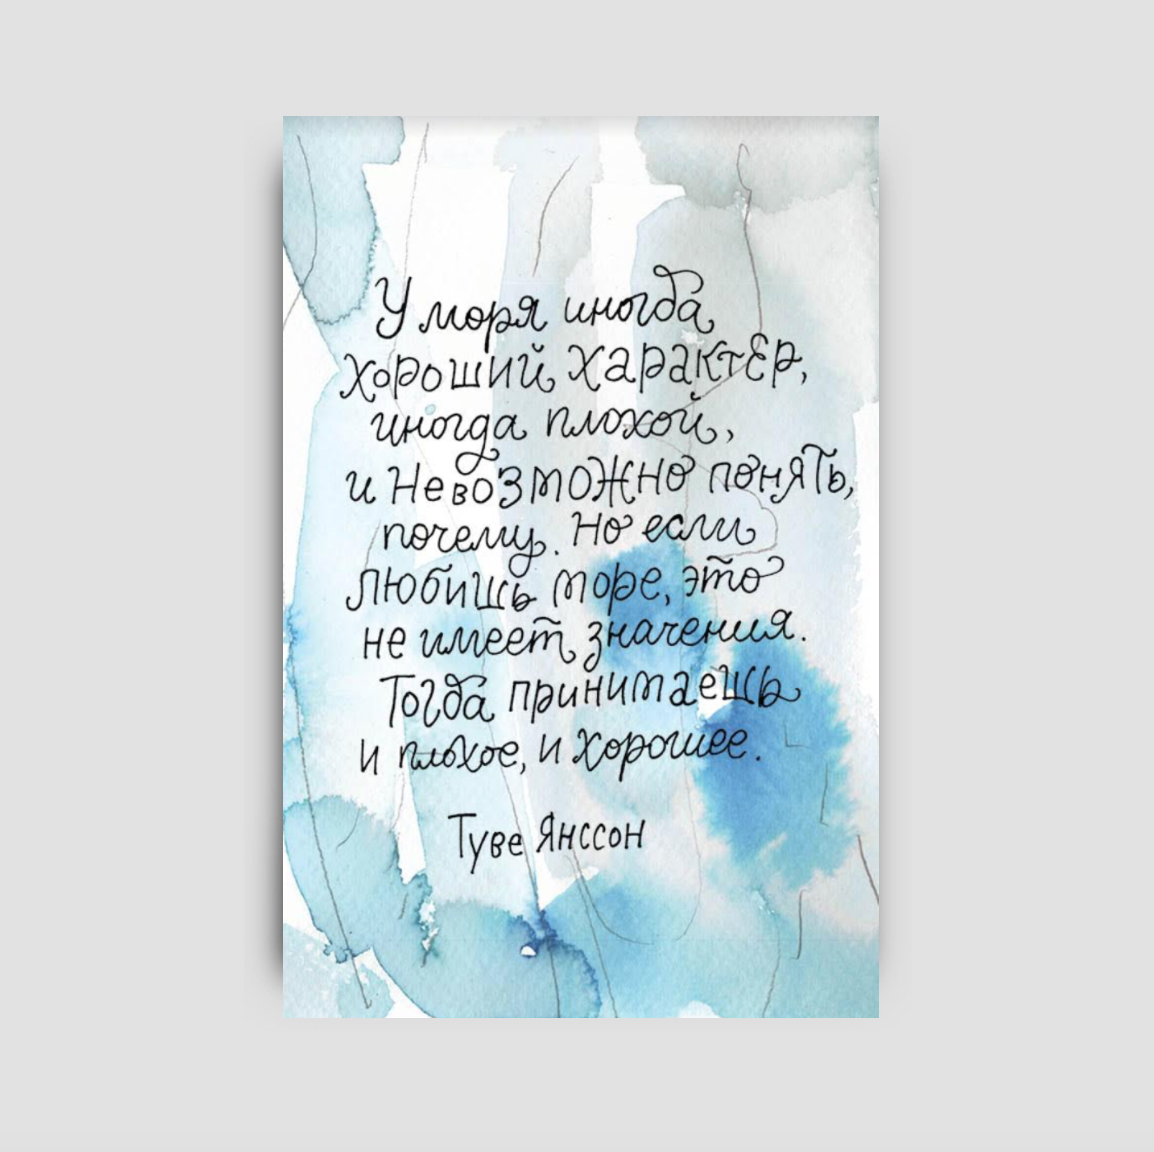 У моря иногда
хороший характер,
иногда плохой,
и невозможно понять,
почему. Но если
любишь море, это
не имеет значения.
Тогда принимаешь
и плохое, и хорошее.
Туве Янссон